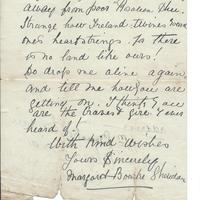 away from poor Hoalum Thee.
Strange how Ireland twines round
one's heartstrings. So there
is no land like ours!
Do drop me a line again
and tell me how you are
getting on. I think you
are the bravest girl I ever
heard of!
With kind wishes
Yours Sincerely,
Margaret Bourke Sheridan